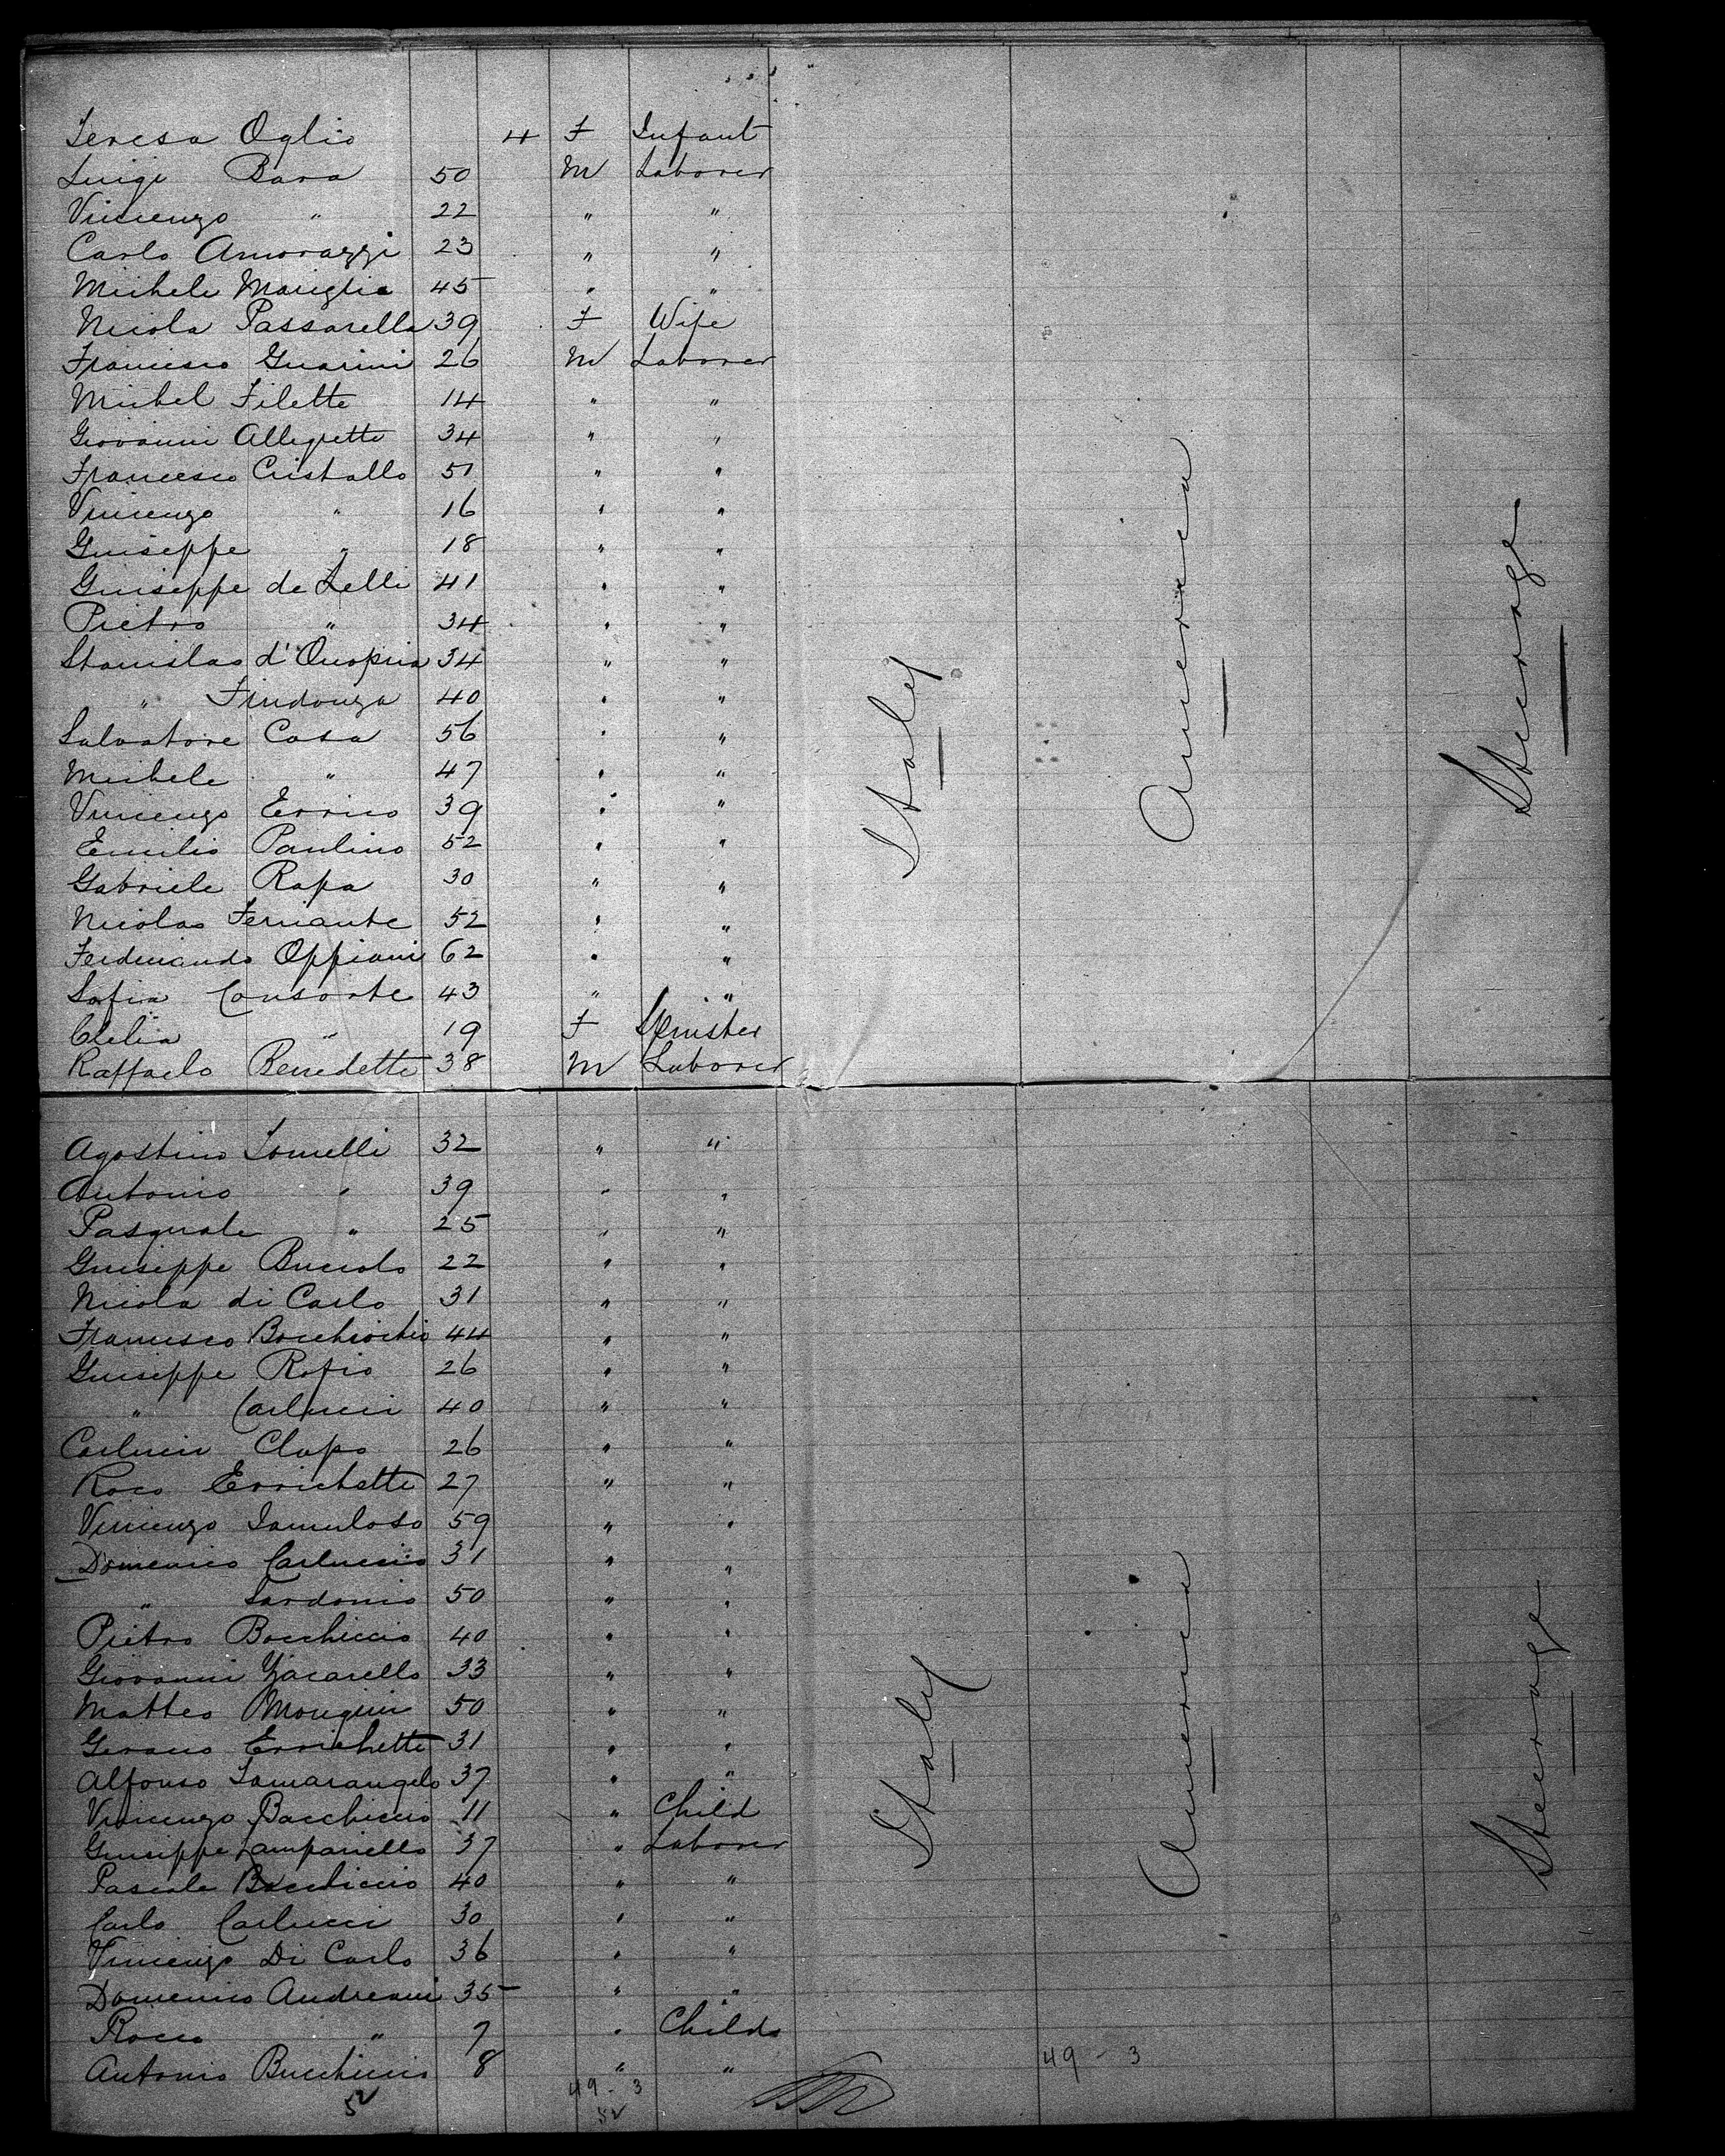 Teresa Oglio 4 F Infant
Luigi Bara 50 M Laborer
Vincenzo " 22 " "
Carlo Amorazzi 23 " "
Michele Mariglia 45 " "
Nicola Passarella 39 F Wife
Francesco Guarini 26 M Laborer
Michel Filette 14 " "
Giovanni Allegretti 34 " "
Francesco Cristallo 51 " "
Vincenzo " 16 " "
Guiseppe " 18 " "
Guiseppe de Lelli 41 " "
Pietro " 34 " "
Stanislao d'Onopria 34 " "
" 40 " "
Salvatore Casa 56 " "
Michele " 47 " "
Vincenzo Errico 39 " "
Emilio Paulino 52 " "
Gabriele Rapa 30 " "
Nicolas Ferrante 52 " "
Ferdinando Oppiani 62 " "
Sofia Consorte 43 " "
Clelia " 19 F Spinster
Raffaelo Benedetti 38 M Laborer
Italy
America
Steerage
Agostino Iomelli 32 " "
Antonio " 39 " "
Pasquale " 25 " "
Guiseppe Bucciolo 22 " "
Nicola di Carlo 31 " "
Francesco Bocchiochio 44 " "
Guiseppe Rofio 26 " "
" Carlucci 40 " "
Carlucci Clapo 26 " "
Roco Errichetti 27 " "
Vincenzo 59 " "
Domenico Carluccio 31 " "
" Sardonio 50 " "
Pietro Bocchiccio 40 " "
Giovanni Yacarello 33 " "
Matteo 50 " "
Geraus Errichetti 31 " "
Alfonso Samarangelo 37 " "
Vincenzo Bacchiccio 11 " Child
Guiseppe Campaniello 37 " Laborer
Pascale Bocchiccio 40 " "
Carlo Carlucci 30 " "
Vincenzo Di Carlo 36 " "
Domenico Andreani 35 " "
Rocco " 7 " Child
Antonio Bucchiccio 8 " "
Italy
America
Steerage
52
49 - 3
52
49 - 3